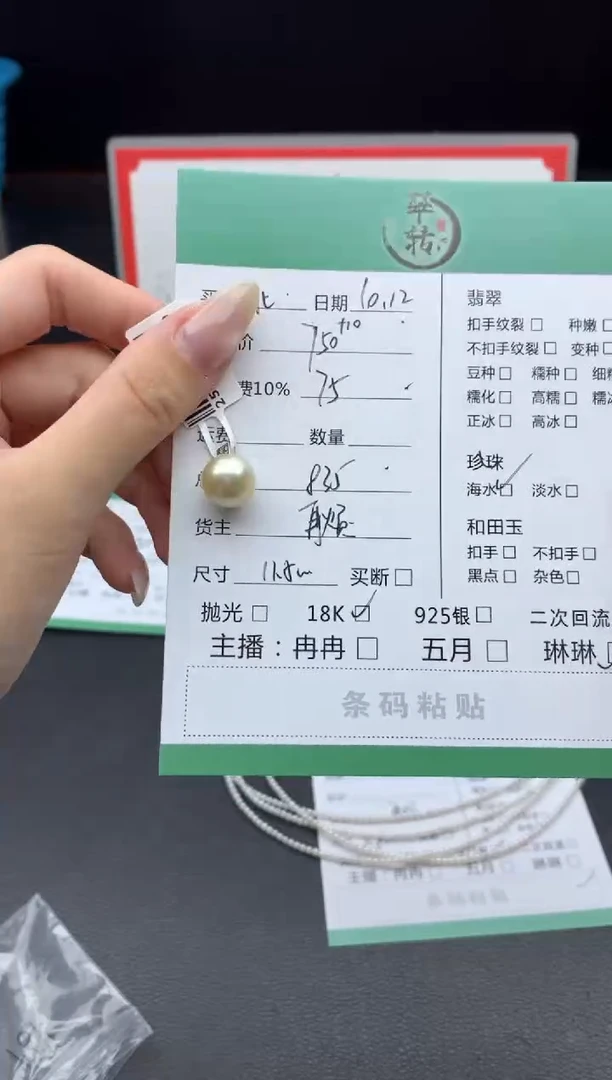 翠转
日期 10.12
价 750 +10
费10% 75
运费 数量
835
货主
尺寸 11.8m 买断□
抛光□ 18K☑ 925银□ 二次回流
主播：冉冉□ 五月□ 琳琳
条码粘贴
翡翠
扣手纹裂□ 种嫩□
不扣手纹裂□ 变种□
豆种□ 糯种□ 细糯
糯化□ 高糯□ 糯冰
正冰□ 高冰□
珍珠
海水☑ 淡水□
和田玉
扣手□ 不扣手□
黑点□ 杂色□
主播：冉冉□ 五月□ 琳琳□
条码粘贴